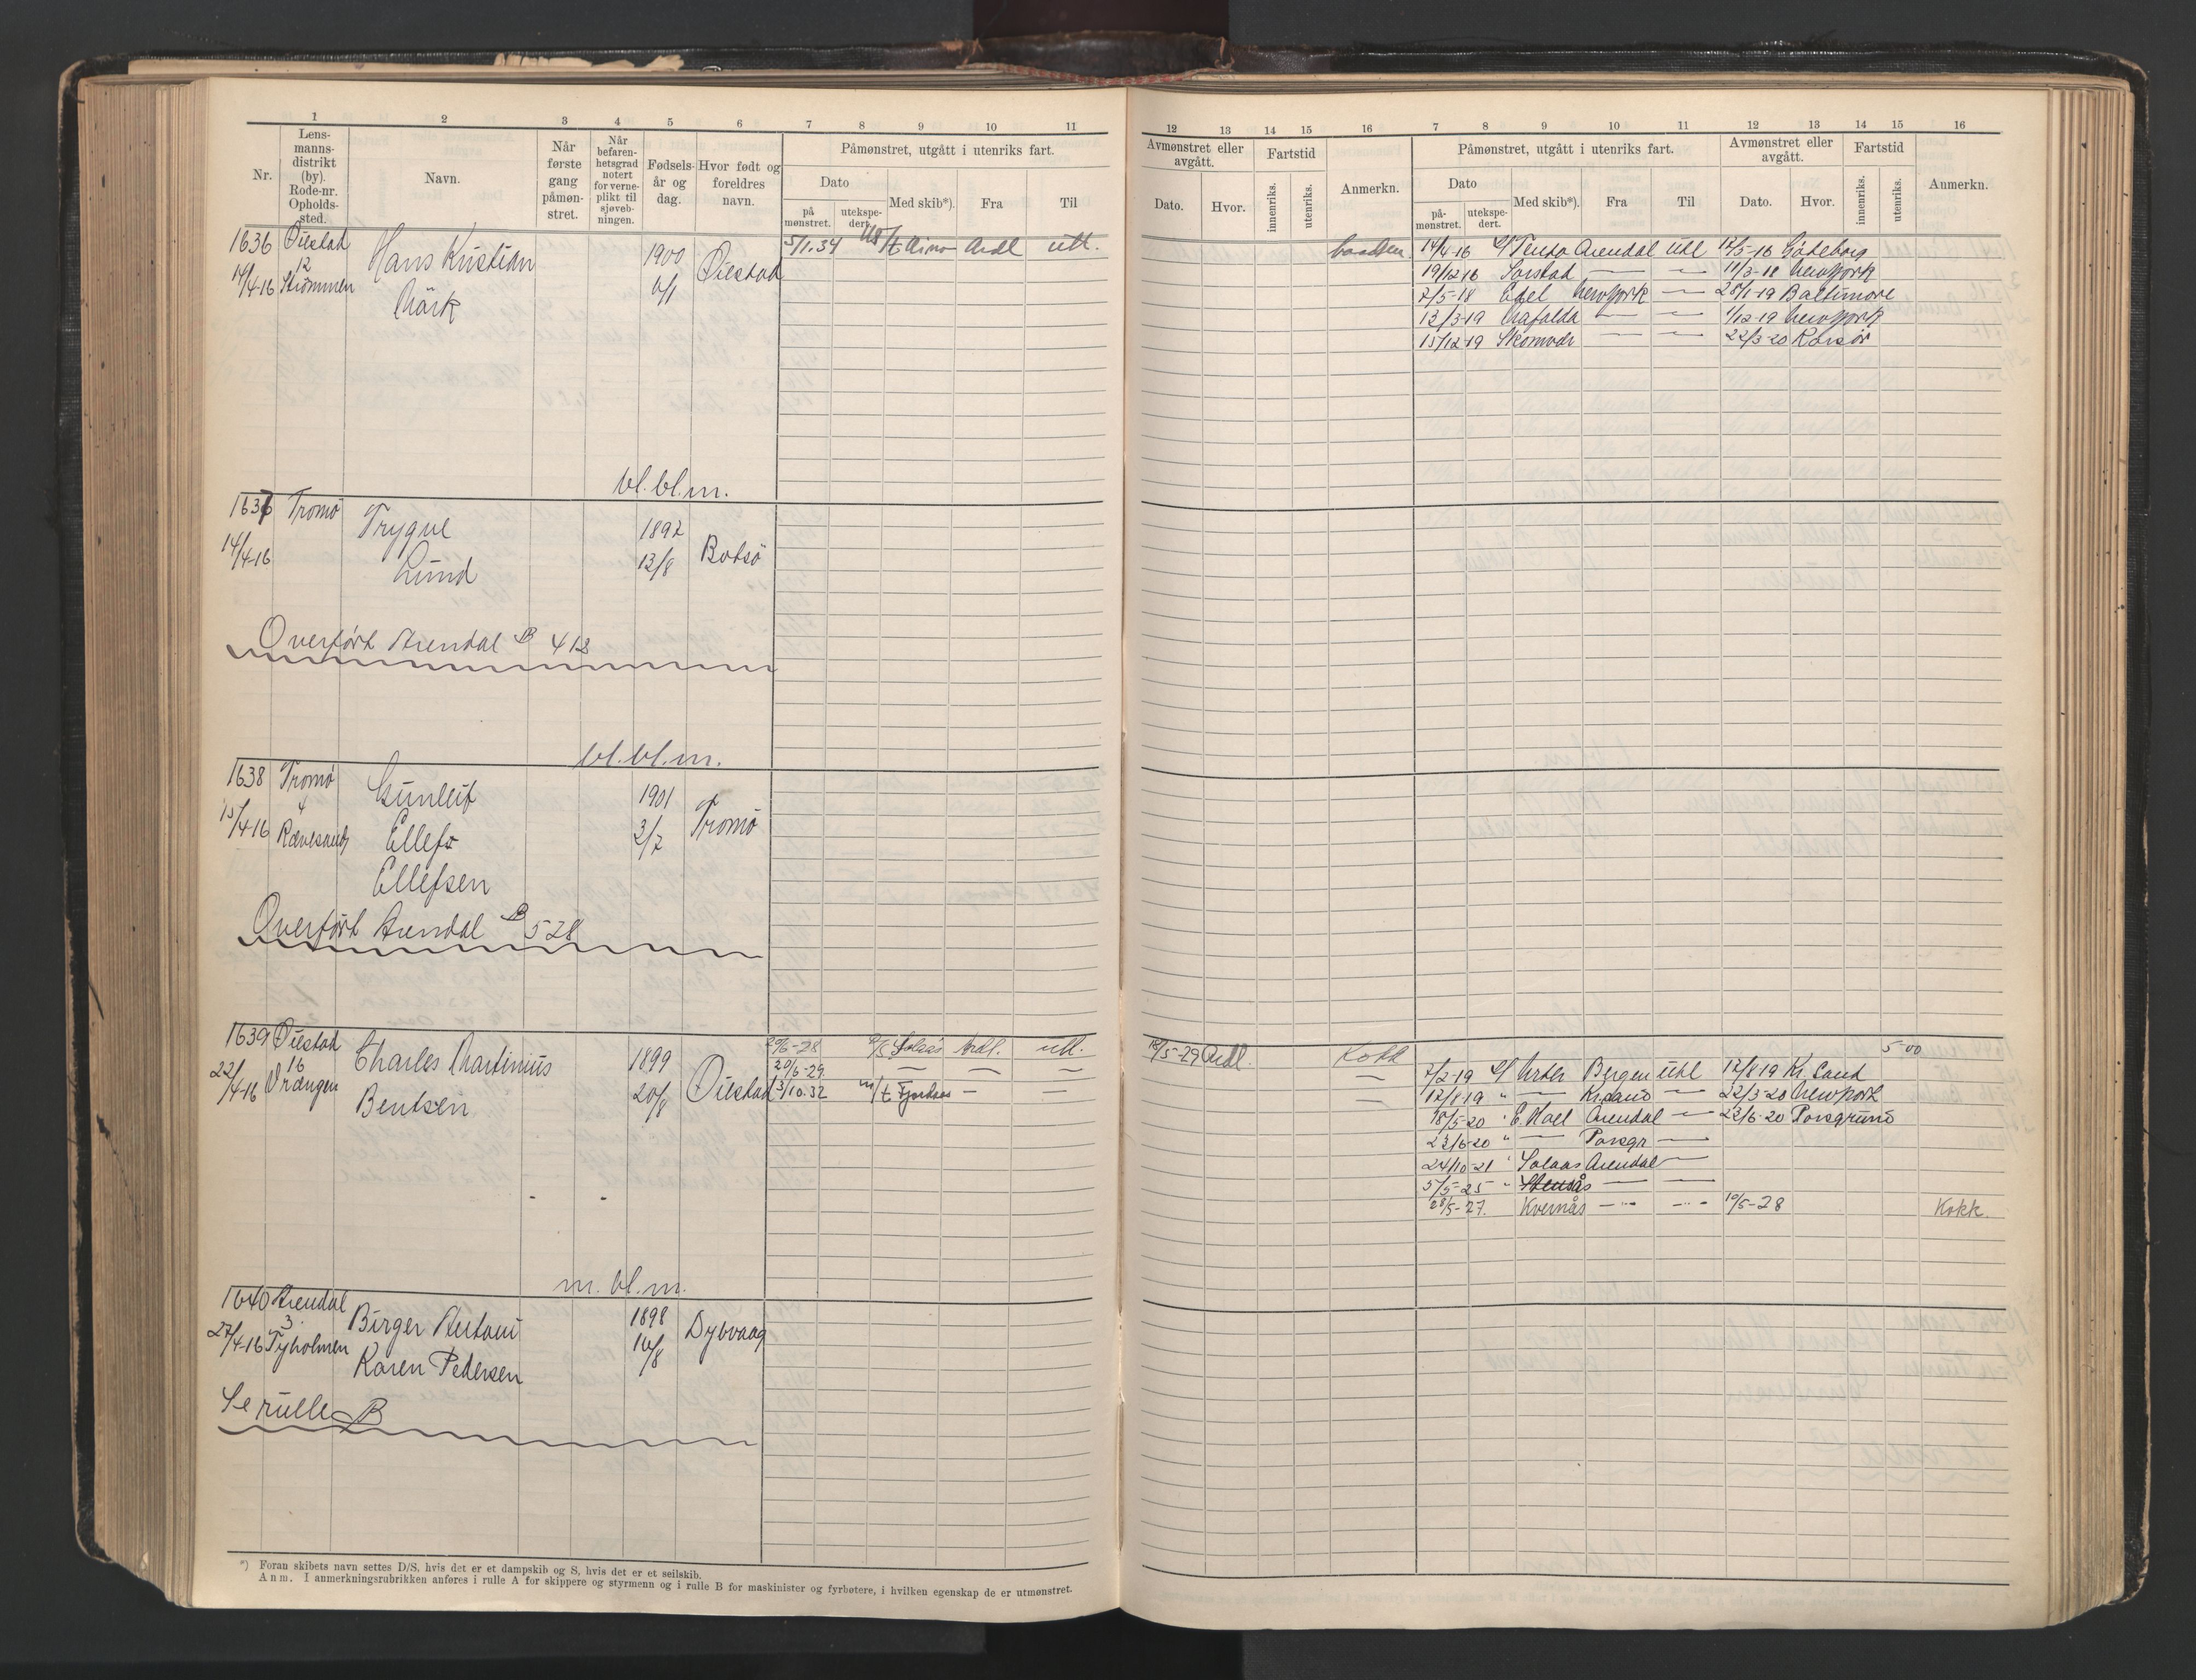 1 2 3 4 5 6 7 8 9 10 11
Nr.
Lens-
manns-
distrikt
(by).
Rode-nr.
Opholds-
sted.
Navn.
Når
første
gang
påmøn-
stret.
Når
befaren-
hetsgrad
notert
for verne-
plikt til
sjøveb-
ningen.
Fødsels-
år og
dag.
Hvor født og
foreldres
navn.
Påmønstret, utgått i utenriks fart.
Dato
på
mønstret.
utekspe-
dert.
Med skib*).
Fra
Til
1636 Øiestad
12
14/4-16 Strømmen
Hans Kristian
1900
6/1
Øiestad
5/1.34 M/t Aino Ardl utl.
bl.bl.m.
1637 Tromø
14/4-16
Trygve
Lund
1892
13/8
Botsö
Overført Arendal B 412
bl.bl.m.
1638 Tromø
4
15/4-16 Rævesand
Gunleif
Ellefs
Ellefsen
1901
3/7
Tromø
Overført Arendal B 528
1639 Øiestad
16
22/4-16 Vrængen
Charles Martinius
Bentsen
1899
20/8
Øiestad
20/6-28 D/S Solaas Ardl. utl.
20/6-29 — — —
13/10.32 m/t Fjordaas — —
m.bl.m.
1640 Arendal
3
27/4-16 Tyholmen
Birger Antoni
Karen Pedersen
1898
16/8
Dybvaag
Se rulle B
*) Foran skibets navn settes D/S, hvis det er et dampskib og S, hvis det er et seilskib.
Anm. I anmerkningsrubrikken anføres i rulle A for skippere og styrmenn og i rulle B for maskinister og fyrbøtere, i hvilken egenskap de er utmønstret.
12 13 14 15 16 7 8 9 10 11 12 13 14 15 16
Avmønstret eller
avgått.
Dato.
Hvor.
Fartstid
innenriks.
utenriks.
Anmerkn.
Påmønstret, utgått i utenriks fart.
Dato
på-
mønstret.
utekspe-
dert.
Med skib*).
Fra
Til
Avmønstret eller
avgått.
Dato.
Hvor.
Fartstid
innenriks.
utenriks.
Anmerkn.
14/4-16 Arendal utl 12/5-16 Göteborg
19/12-16 Sorstad — — 11/3-18 Newyork
2/5-18 Edel Newyork — 28/1-19 Baltimore
13/3-19 Mafalda — — 1/12-19 Newyork
15/12-19 — — 22/3-20 Korsör
18/5-29 Ardl. Kokk
—
—
5 00
7/2-19 Bergen utl 12/8-19 Kr.Sand
12/8-19 " — Kr.sand — 22/3-20 Newyork
18/5-20 " Arendal — 23/6-20 Porsgrund
23/6-20 " — Porsgr —
24/10-21 " Solaas Arendal —
5/5-25 " — —
28/5-27. Kvernås — — 10/5-28 Kokk.